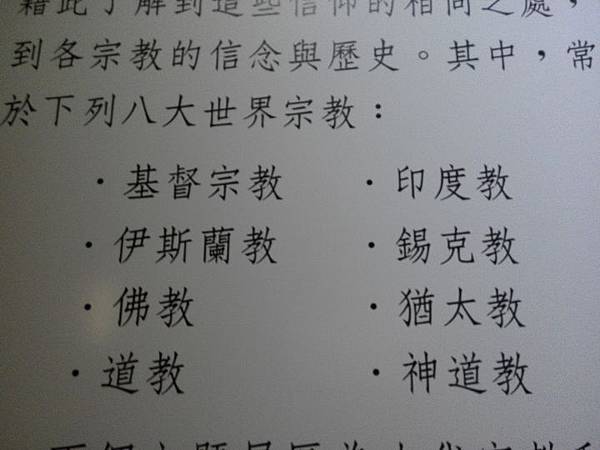 藉此了解到這些信仰的相同之處，
到各宗教的信念與歷史。其中，常
於下列八大世界宗教：
·基督宗教 ·印度教
·伊斯蘭教 ·錫克教
·佛教 ·猶太教
·道教 ·神道教